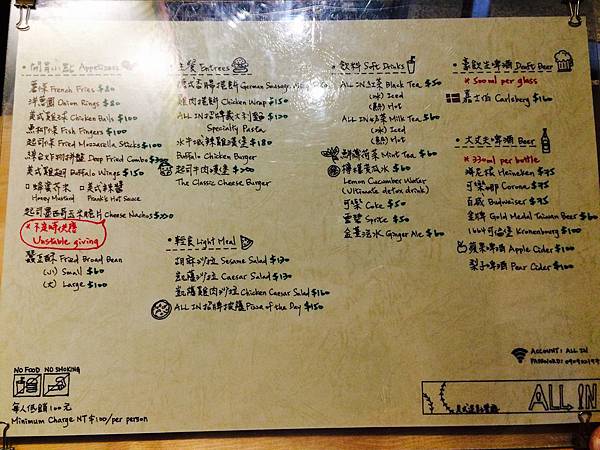 開胃小點 Appetizers
薯條 French Fries $80
洋蔥圈 Onion Rings $80
美式雞球 Chicken Balls $100
魚柳條 Fish Fingers $100
起司條 Fried Mozzarella Sticks $100
綜合炸物拼盤 Deep Fried Combo
美式雞翅 Buffalo Wings $150
蜂蜜芥末 美式辣醬
Honey Mustard Frank's Hot Sauce
起司墨西哥玉米脆片 Cheese Nachos
*不定時供應
Unstable giving
蠶豆酥 Fried Broad Bean
(小) Small $60
(大) Large $100
主餐 Entrees
德式香腸捲餅 German Sausage
雞肉捲餅 Chicken Wrap $150
ALL IN 招牌義大利麵
Specialty Pasta
水牛城辣雞漢堡 $180
Buffalo Chicken Burger
起司牛肉漢堡
The Classic Cheese Burger
輕食 Light Meal
胡麻沙拉 Sesame Salad $130
凱薩沙拉 Caesar Salad $130
凱薩雞肉沙拉 Chicken Caesar Salad $160
ALL IN 招牌披薩 Pizza of the Day $150
飲料 Soft Drinks
ALL IN 紅茶 Black Tea $50
(冰) Iced
(熱) Hot
ALL IN 奶茶 Milk Tea $60
(冰) Iced
(熱) Hot
鮮薄荷茶 Mint Tea $60
檸檬黃瓜水 $60
Lemon Cucumber Water
(Ultimate detox drink)
可樂 Coke $50
雪碧 Sprite $50
薑汁汽水 Ginger Ale $60
豪飲生啤酒 Draft Beer
*500ml per glass
嘉士伯 Carlsberg $160
大丈夫啤酒 Beer
*330ml per bottle
海尼根 Heineken $95
可樂娜 Corona $95
百威 Budweiser $95
金牌 Gold Medal Taiwan Beer $80
1664可倫堡 Kronenbourg $100
蘋果啤酒 Apple Cider $100
梨子啤酒 Pear Cider $100
ACCOUNT: ALL IN
PASSWORD:
NO FOOD NO SMOKING
每人低銷100元
Minimum Charge NT $100/per person
ALL IN